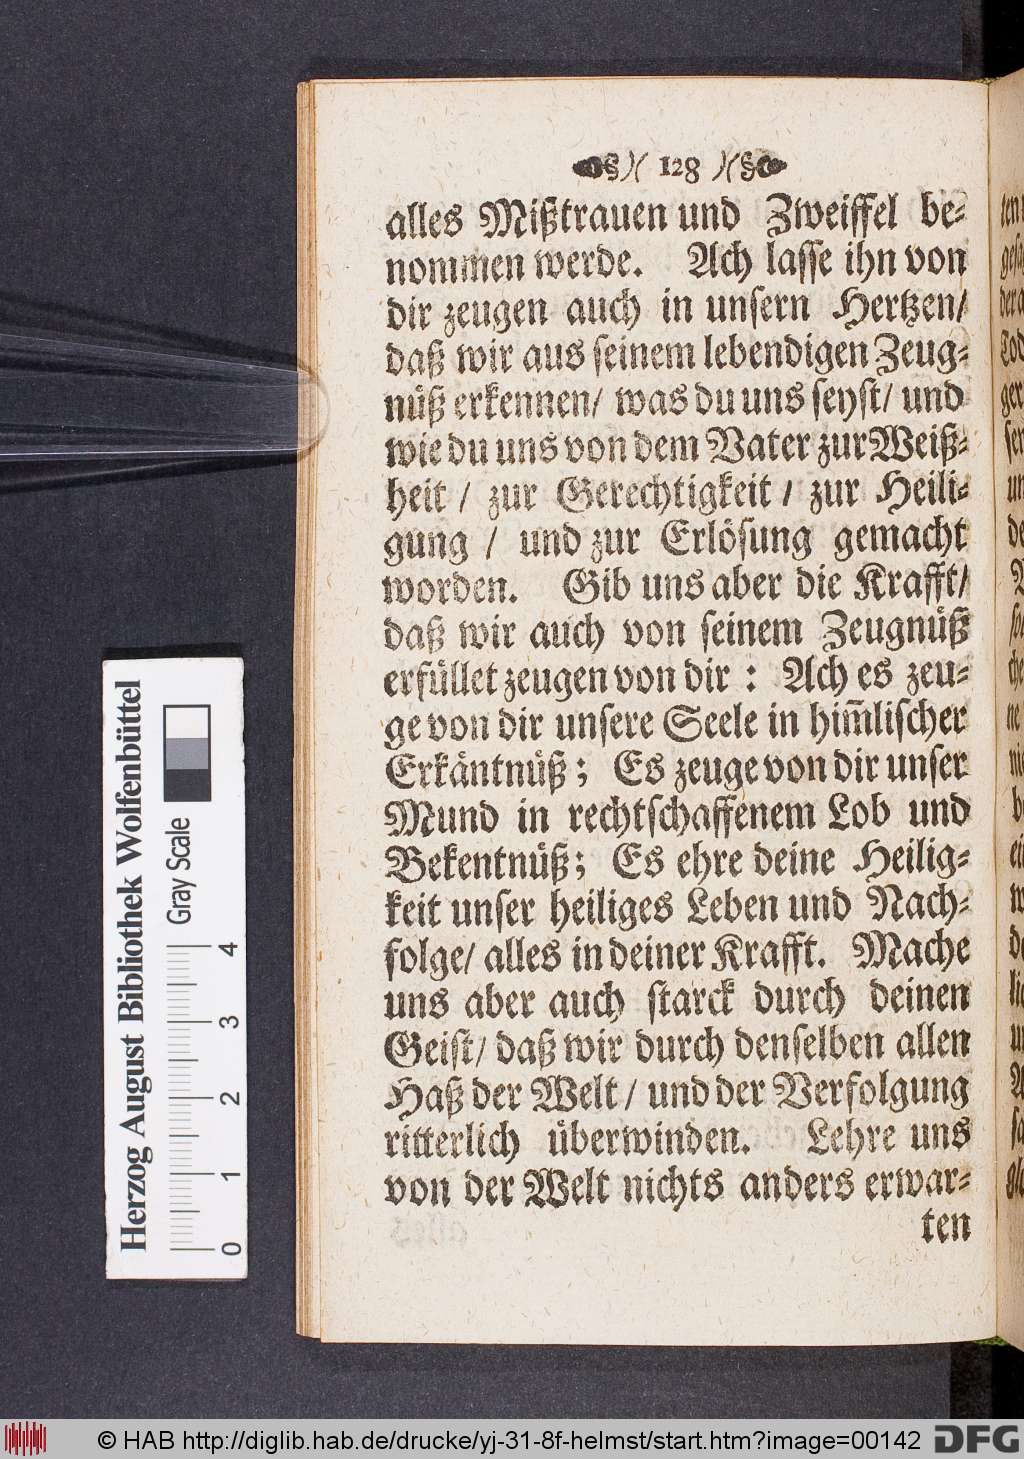 128
alles Mißtrauen und Zweiffel be-
nommen werde. Ach lasse ihn von
dir zeugen auch in unsern Hertzen/
daß wir aus seinem lebendigen Zeug-
nüß erkennen/ was du uns seyst/ und
wie du uns von dem Vater zur Weiß-
heit / zur Gerechtigkeit / zur Heili-
gung / und zur Erlösung gemacht
worden. Gib uns aber die Krafft/
daß wir auch von seinem Zeugnüß
erfüllet zeugen von dir : Ach es zeu-
ge von dir unsere Seele in him̃lischer
Erkäntnüß; Es zeuge von dir unser
Mund in rechtschaffenem Lob und
Bekentnüß; Es ehre deine Heilig-
keit unser heiliges Leben und Nach-
folge/ alles in deiner Krafft. Mache
uns aber auch starck durch deinen
Geist/ daß wir durch denselben allen
Haß der Welt / und der Verfolgung
ritterlich überwinden. Lehre uns
von der Welt nichts anders erwar-
ten
Herzog August Bibliothek Wolfenbüttel
Gray Scale
0 1 2 3 4
© HAB http://diglib.hab.de/drucke/yj-31-8f-helmst/start.htm?image=00142
DFG